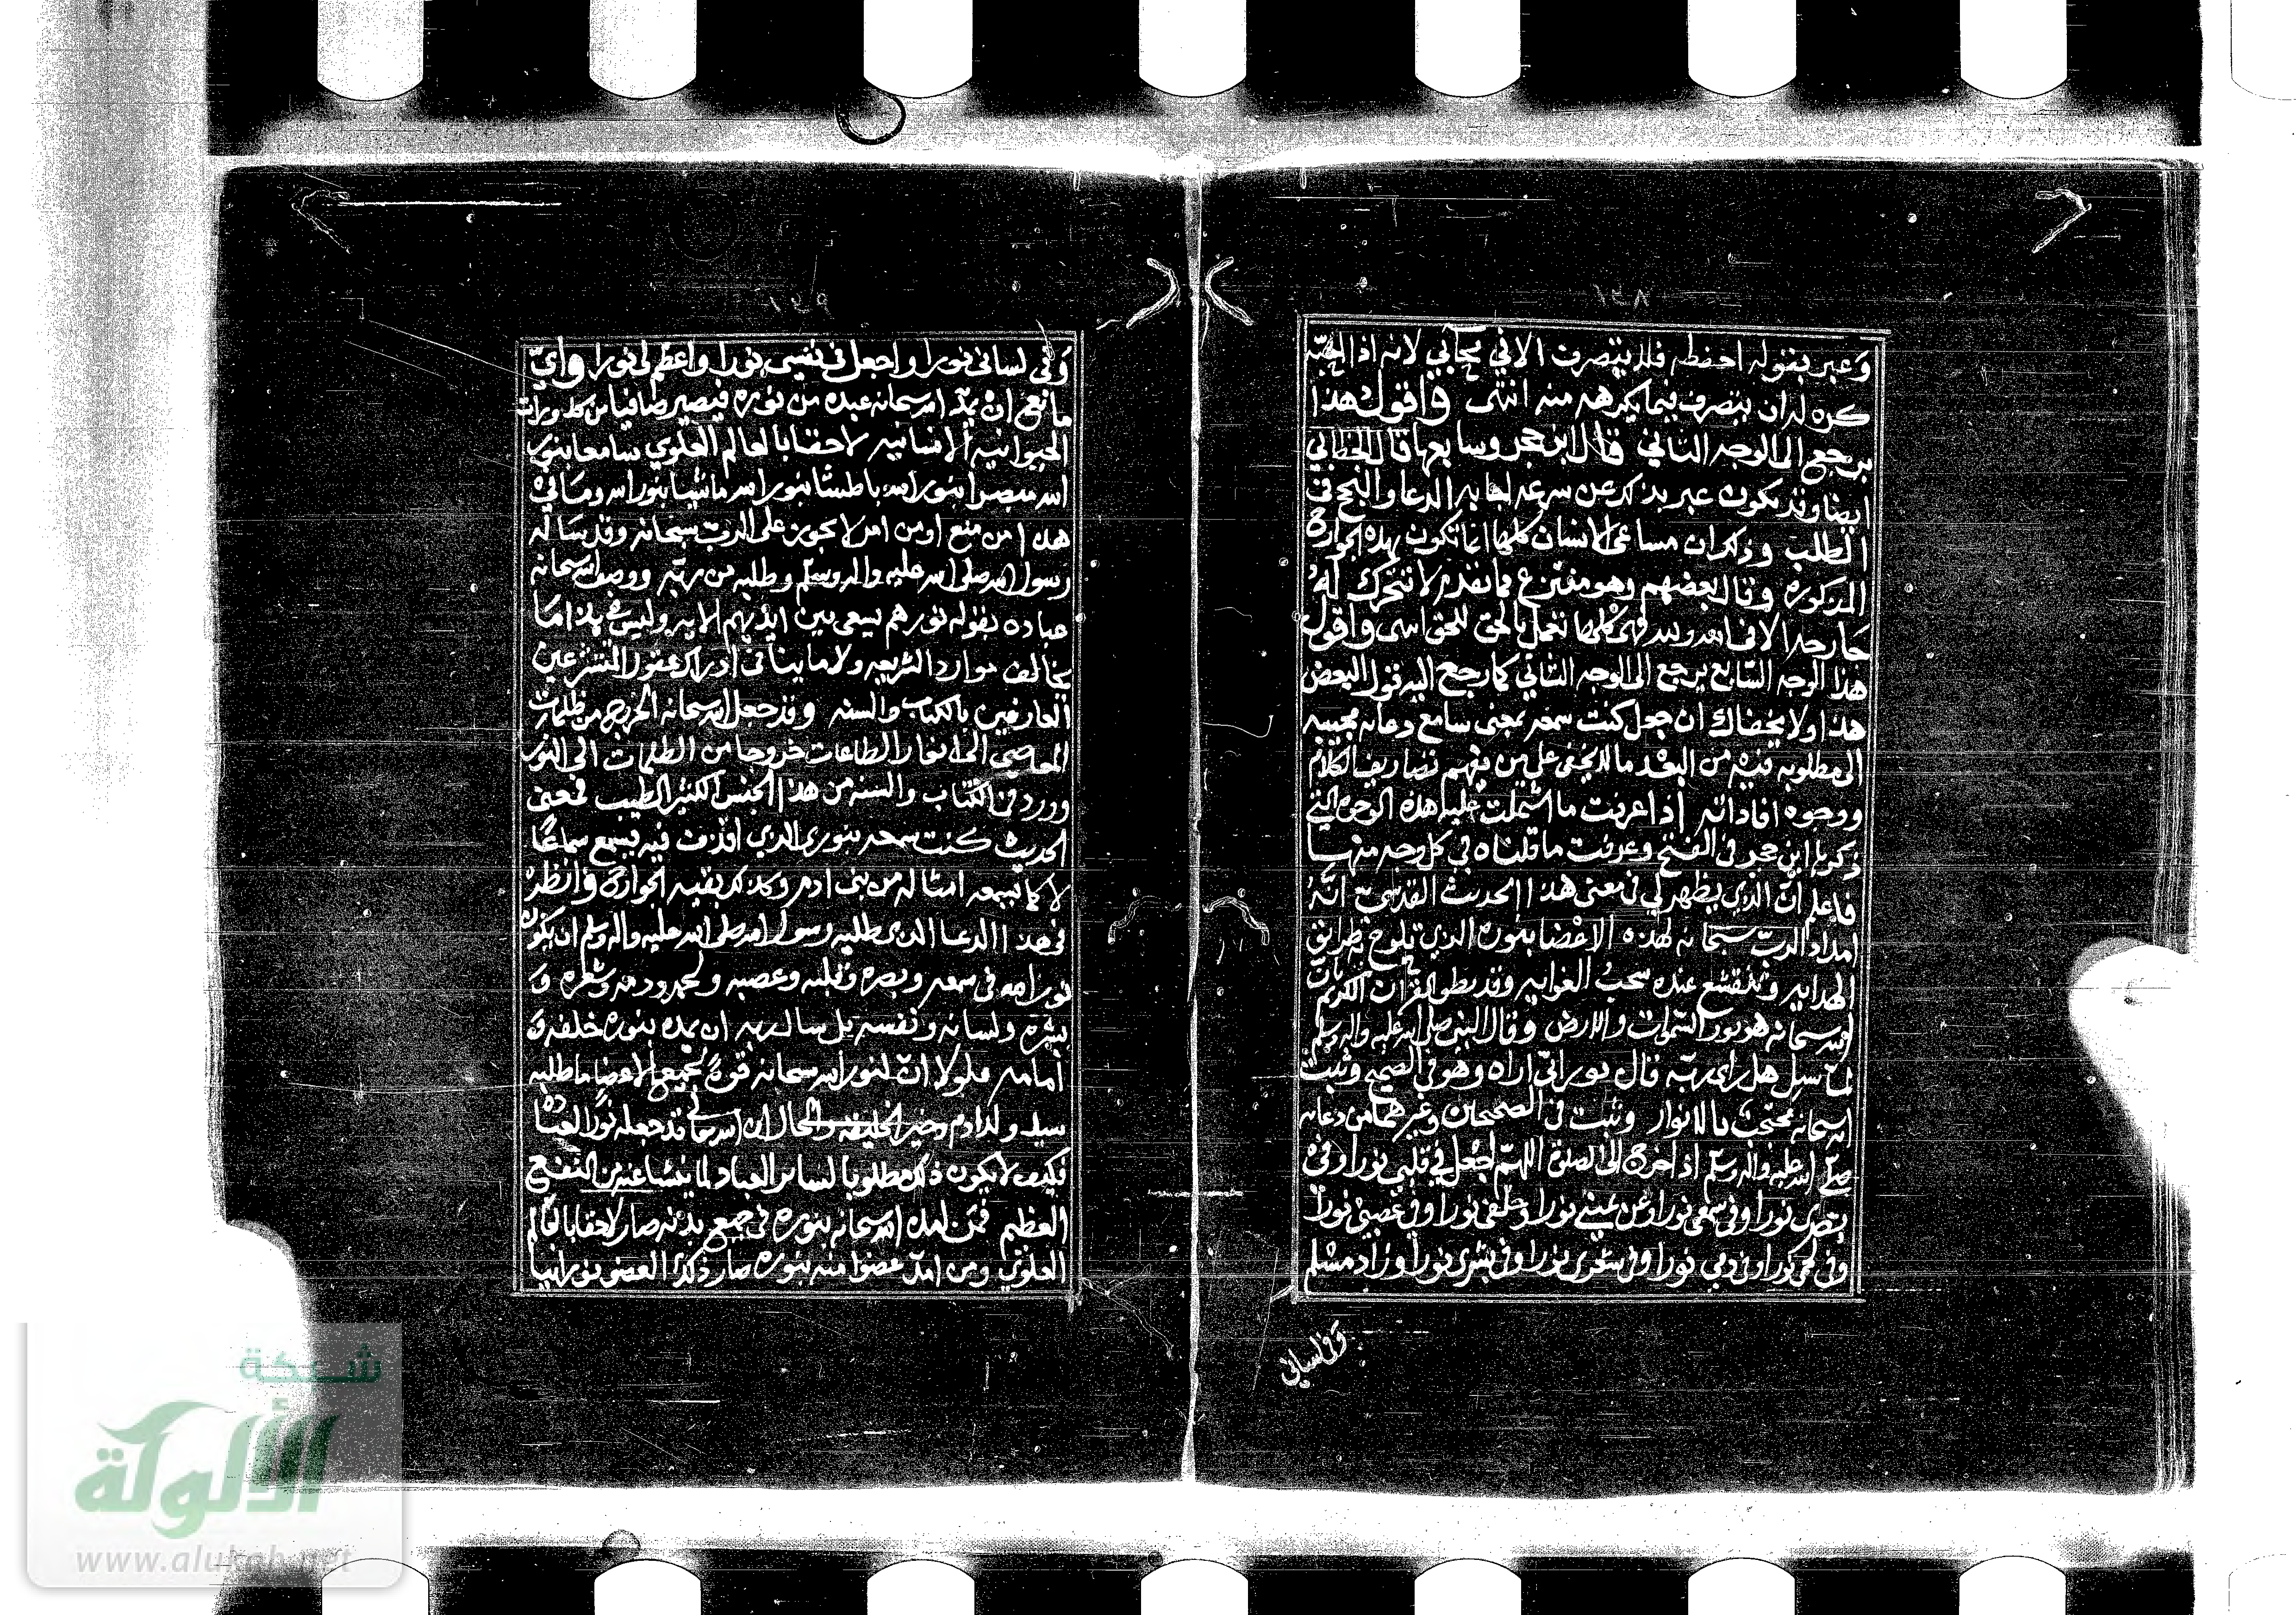 ١٤٨
وعبر بقوله احفظه فلا يتصرف الا في محابي لانه اذا احبه
كره له ان يتصرف فيما يكرهه منه انتهى واقول هذا
يرجع الى الوجه الثاني قال ابن حجر وسابعها قال الخطابي
ايضا وقد يكون عبر بذلك عن سرعة اجابه الدعا والنجح في
الطلب وذلك ان مساعي الانسان كلها انما تكون بهذه الجوارح
المذكوره وقال بعضهم وهو منتزع مما تقدم لا تتحرك له
جارحه الا في الله ولله فهي كلها تعمل بالحق للحق انتهى واقول
هذا الوجه السابع يرجع الى الوجه الثاني كما رجع اليه قول البعض
هذا ولا يخفاك ان جعل كنت سمعه بمعنى سامع دعائه مجيبه
الى مطلوبه فيه من البعد ما لا يخفى على من يفهم تصاريف الكلام
ووجوه افاداته اذا عرفت ما اشتملت عليه هذه الوجوه التي
ذكرها ابن حجر في الفتح وعرفت ما قلناه في كل وجه منها
فاعلم ان الذي يظهر لي في معنى هذا الحديث القدسي انه
امداد الرب سبحانه لهذه الاعضا بنوره الذي تلوح به طرايق
الهدايه وتنقشع عنده سحب الغوايه وقد نطق القران الكريم بان
الله سبحانه هو نور السموات والارض وقال النبي صلى الله عليه واله وسلم
لما سيل هل راى ربه قال نور اني اراه وهو في الصحيح وثبت
انه سبحانه محتجب بالانوار وثبت في الصحيحين وغيرهما من دعائه
صلى الله عليه واله وسلم اذا خرج الى الصلوة اللهم اجعل في قلبي نورا وفي
بصري نورا وفي سمعي نورا وعن يميني نورا وخلفي نورا وفي عصبي نورا
وفي لحمي نورا وفي دمي نورا وفي شعري نورا وفي بشري نورا وزاد مسلم
وفي لساني
١٤٩
وفي لساني نورا واجعل في نفسي نورا واعظم لي نورا واي
مانع ان يمد الله سبحانه عبده من نوره فيصير صافيا من كدورات
الحيوانيه الانسانيه لاحقا بالعالم العلوي سامعا بنور
الله مبصرا بنور الله باطشا بنور الله ماشيا بنور الله وما في
هذا من منع او من امر لا يجوز على الرب سبحانه وقد ساله
رسول الله صلى الله عليه واله وسلم وطلبه من ربه ووصف الله سبحانه
عباده بقوله نورهم يسعى بين ايديهم الايه وليس في هذا ما
يخالف موارد الشريعه ولا ما ينافي ادراك عقول المتشرعين
العارفين بالكتاب والسنه وقد جعل الله سبحانه الخروج من ظلمات
المعاصي الى انوار الطاعات خروجا من الظلمات الى النور
وورد في الكتاب والسنه من هذا الجنس الكثير الطيب فمعنى
الحديث كنت سمعه بنوري الذي اقذف فيه فيسمع سماعا
لا كما يسمعه امثاله من بني ادم وكذلك بقيه الجوارح وانظر
في هذا الدعا الذي طلبه رسول الله صلى الله عليه واله وسلم ان يكون
نور الله في سمعه وبصره وقلبه وعصبه ولحمه ودمه وشعره و
بشره ولسانه ونفسه بل سال ربه ان يمده بنوره خلفه و
امامه ولولا ان لنور الله سبحانه قوة لجميع الاعضا ما طلبه
سيد ولد ادم وخير الخليقه والحال ان الله سبحانه قد جعله نورا لعباده
فكيف لا يكون ذلك مطلوبا لساير العباد لما ينشا عنه من النفع
العظيم فمن امده الله سبحانه بنوره في جميع بدنه صار لاحقا بالعالم
العلوي ومن امد عضوا منه بنوره صار ذلك العضو نورانيا
شبكة
الألوكة
www.alukah.net